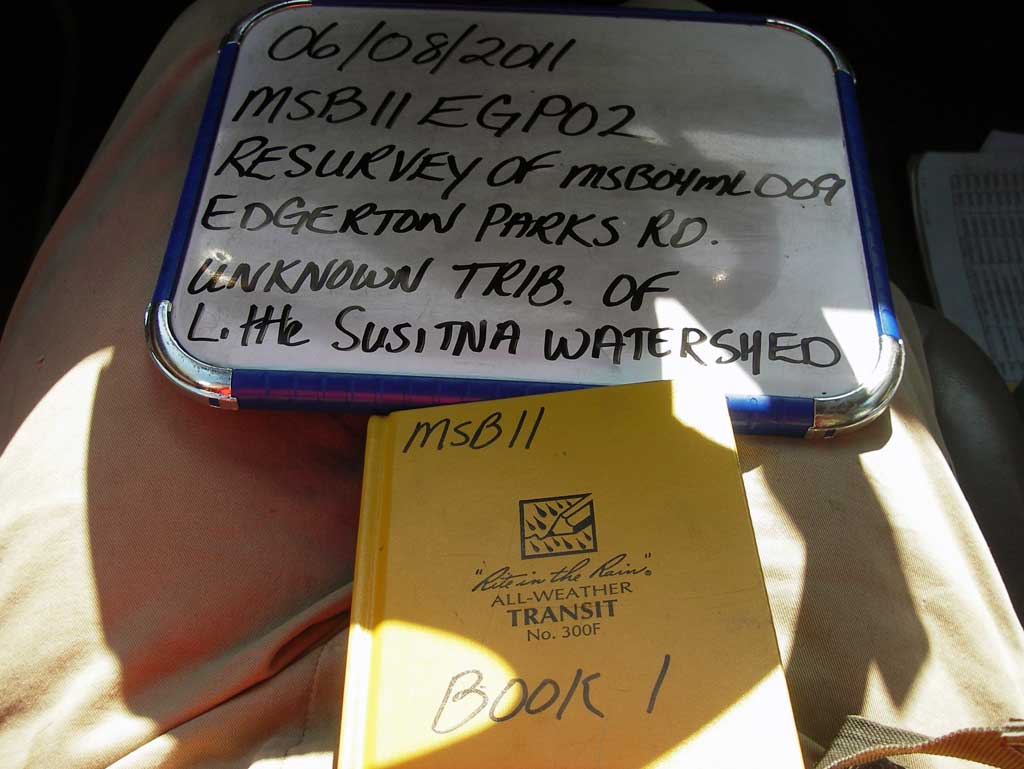 06/08/2011
MSB11EGP02
RESURVEY OF MSB04ML009
EDGERTON PARKS RD.
UNKNOWN TRIB. OF
Little SUSITNA WATERSHED
MSB11
"Rite in the Rain"®
ALL-WEATHER
TRANSIT
No. 300F
BOOK 1